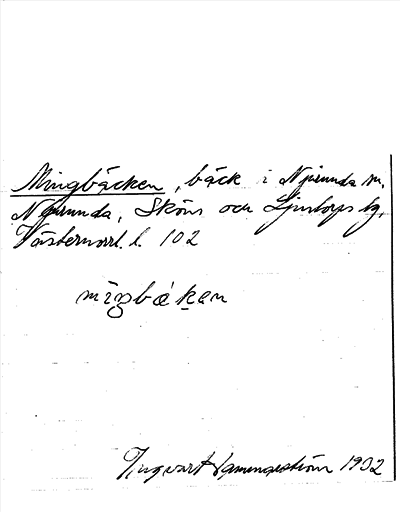 Mingbäcken, bäck i Njurunda sn,
Njurunda, Sköns och Ljustorps tg,
Västernorrl. l. 102
mīŋbä̀ḵen
Ingvar Hammarström 1932